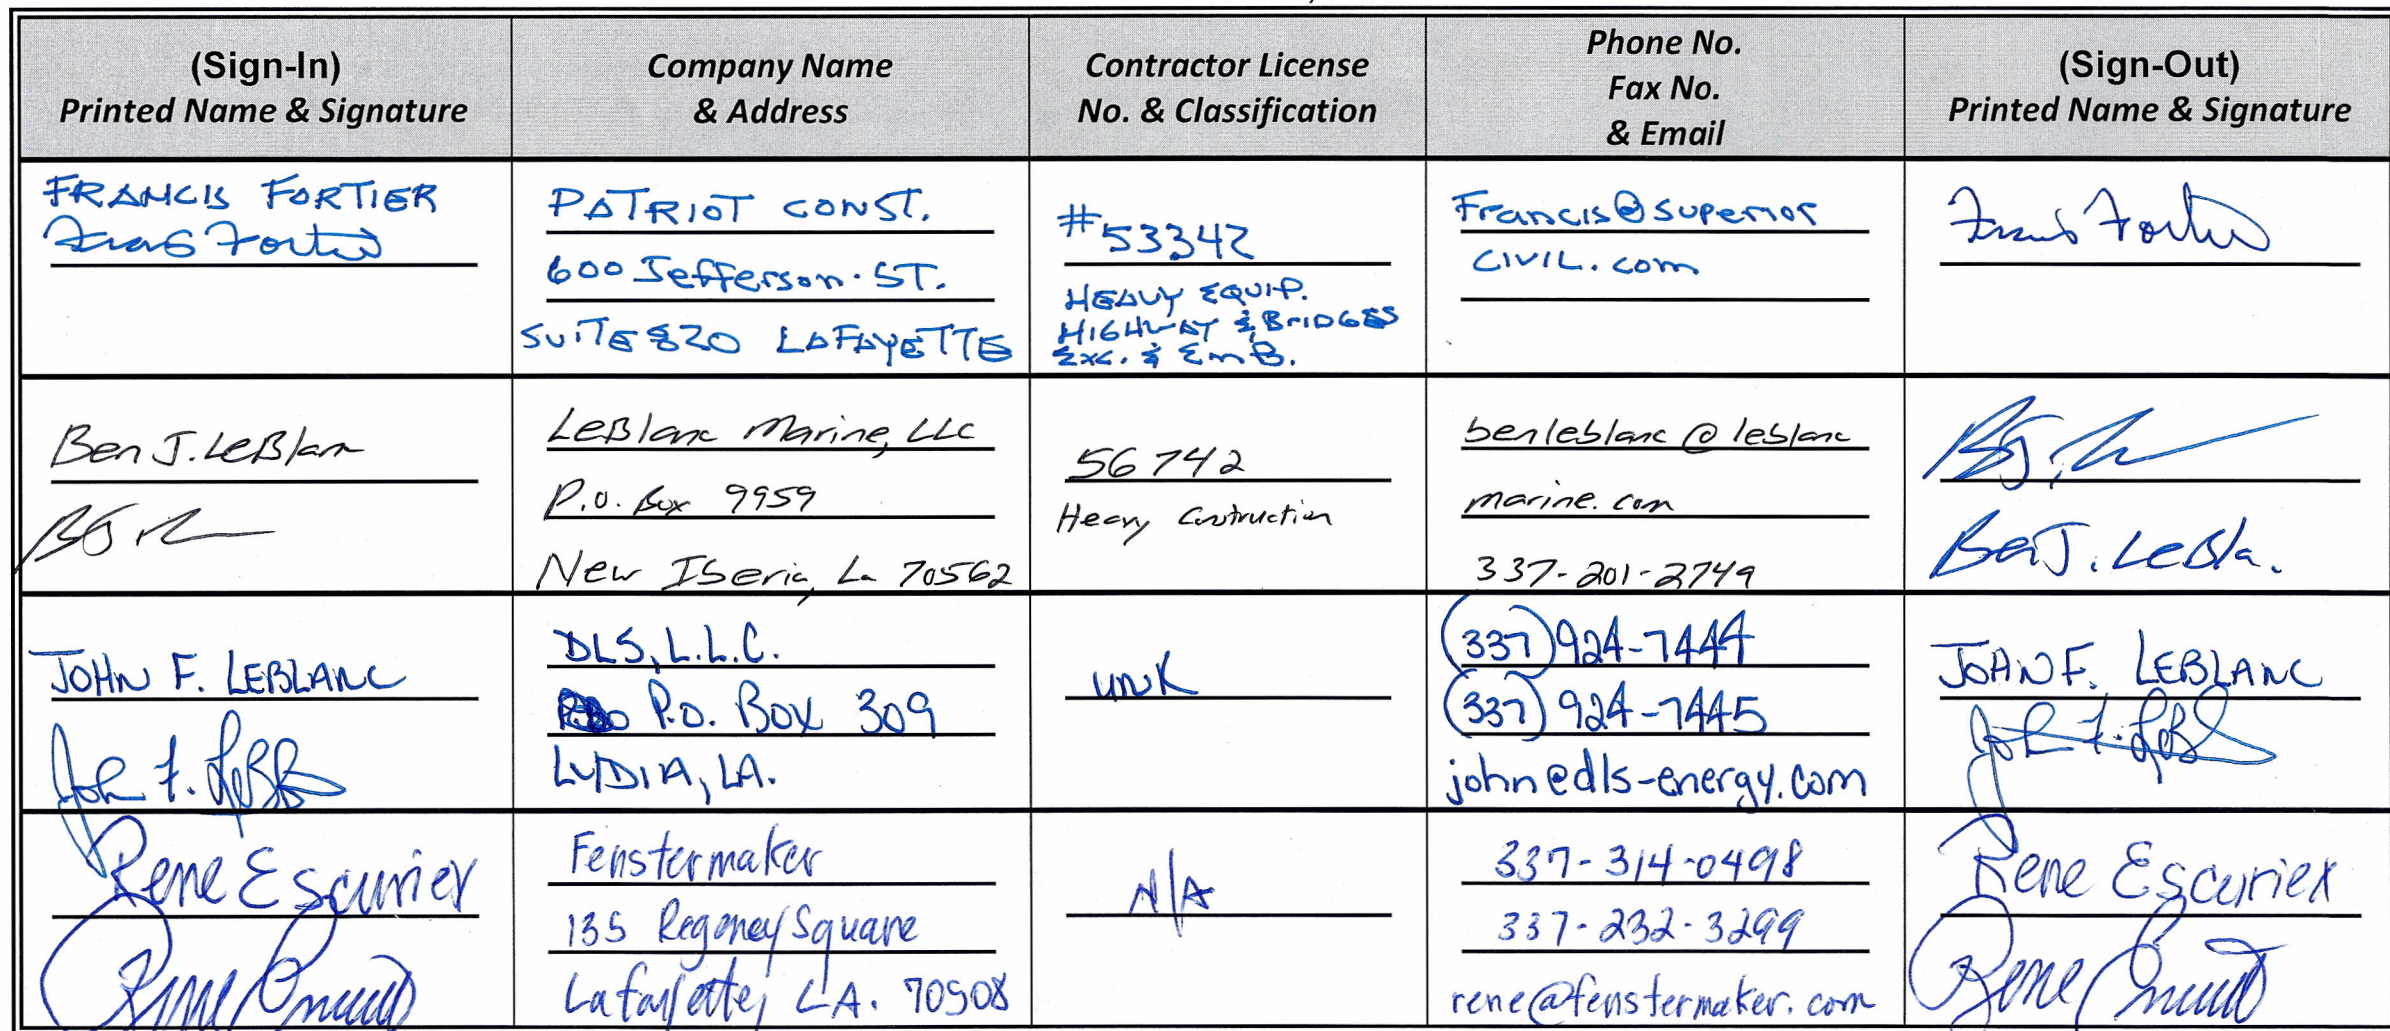 (Sign-In)
Printed Name & Signature
Company Name
& Address
Contractor License
No. & Classification
Phone No.
Fax No.
& Email
(Sign-Out)
Printed Name & Signature
FRANCIS FORTIER
Francis Fortier
PATRIOT CONST.
600 Jefferson ST.
SUITE 820 LAFAYETTE
#53342
HEAVY EQUIP.
HIGHWAY & BRIDGES
EXC. & EMB.
Francis@superior
CIVIL.com
Francis Fortier
Ben J. LeBlanc
LeBlanc Marine, LLC
P.O. Box 9959
New Iberia, La 70562
56742
Heavy Construction
benleblanc@leblanc
marine.com
337-201-2749
Ben J. LeBla.
JOHN F. LEBLANC
John F. LeBl
DLS, L.L.C.
P.O. BOX 309
LYDIA, LA.
UNK
(337) 924-7444
(337) 924-7445
john@dls-energy.com
JOHN F. LEBLANC
John F. LeBl
Rene Escurier
Rene
Fenstermaker
135 Regency Square
Lafayette, LA. 70508
N/A
337-314-0498
337-232-3299
rene@fenstermaker.com
Rene Escuriex
Rene